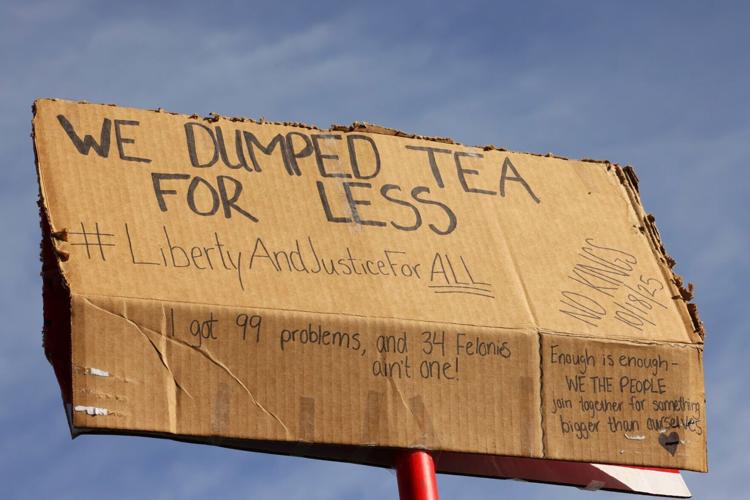 WE DUMPED TEA
FOR LESS
#LibertyAndJusticeFor ALL
NO KINGS
10/18/25
I got 99 problems, and 34 Felonies
ain't one!
Enough is enough-
WE THE PEOPLE
join together for something
bigger than ourselves